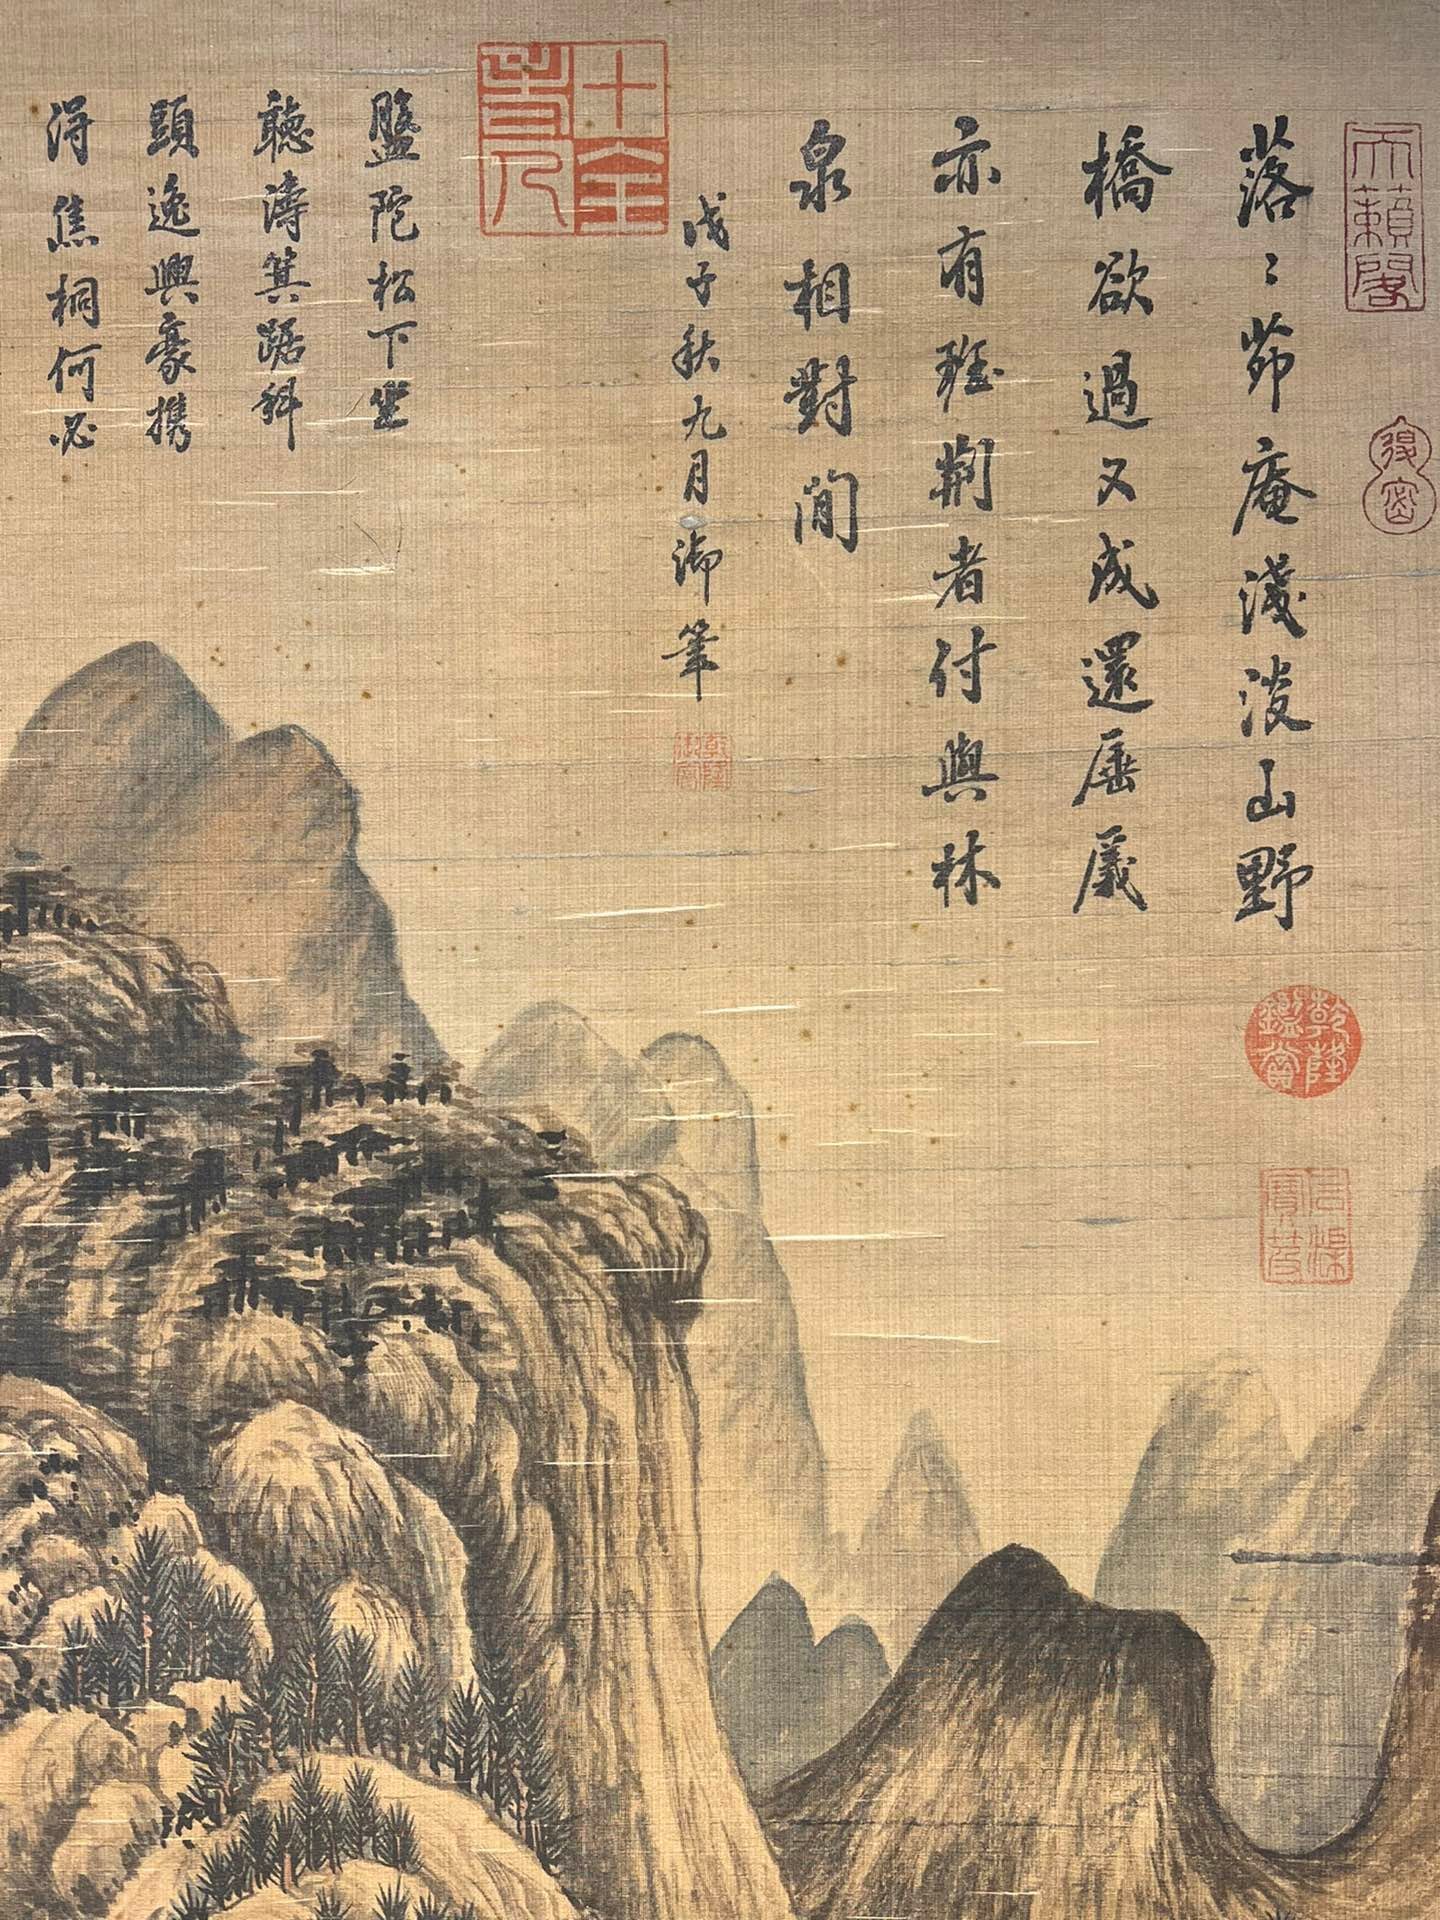 天籟閣
落〻茆庵淺淡山野
橋欲過又成還厜㕒
亦有班荆者付與林
泉相對閒
戊子秋九月御筆
乾隆鑑賞
十全老人
盤陀松下坐
聽濤箕踞科
頭逸興豪携
得焦桐何必